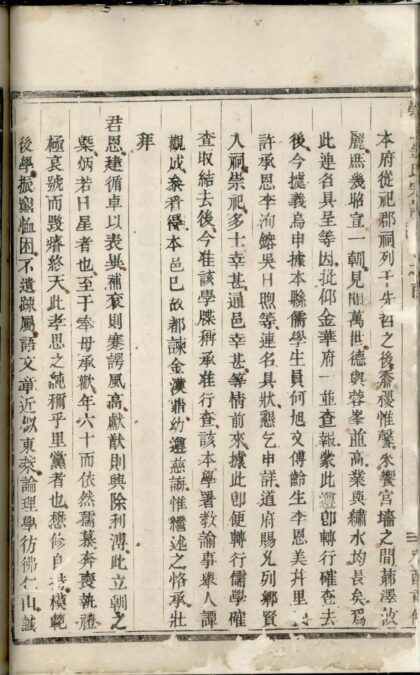 本府從祀郡祠列于先哲之後黍稷惟馨朱饗宮墻之間
麗庶幾駱宣一朝見聞萬世德與蓉峯並高業與繡水均長矣爲
此連名具呈等因批仰金華府一並查報蒙此遵卽轉行確查去
後今據義烏申據本縣儒學生員何旭文傅齡生李恩美幷里
許承恩李洵鎔吳日煦等連名具狀懇乞申詳道府賜允列鄉賢
人祠崇祀多士幸甚通邑幸甚等情前來據此卽便轉行儒學確
查取結去後今准該學牒稱承准行查該本學署敎諭事舉人譚
觀成叅看得本邑已故都諫金漢鼎幼遵慈誨惟繼述之恪承壯
拜
君恩建循卓以表異補袞則蹇諤風高獻猷則興除利溥此立朝之
槩炳若日星者也至于奉母承歡年六十而依然孺慕奔喪執禮
極哀號而毀瘠終天此孝思之純稱乎里黨者也懋修自
模範
後學振窮恤困不遺疎屬語文章近似東萊論理學彷彿
山誠